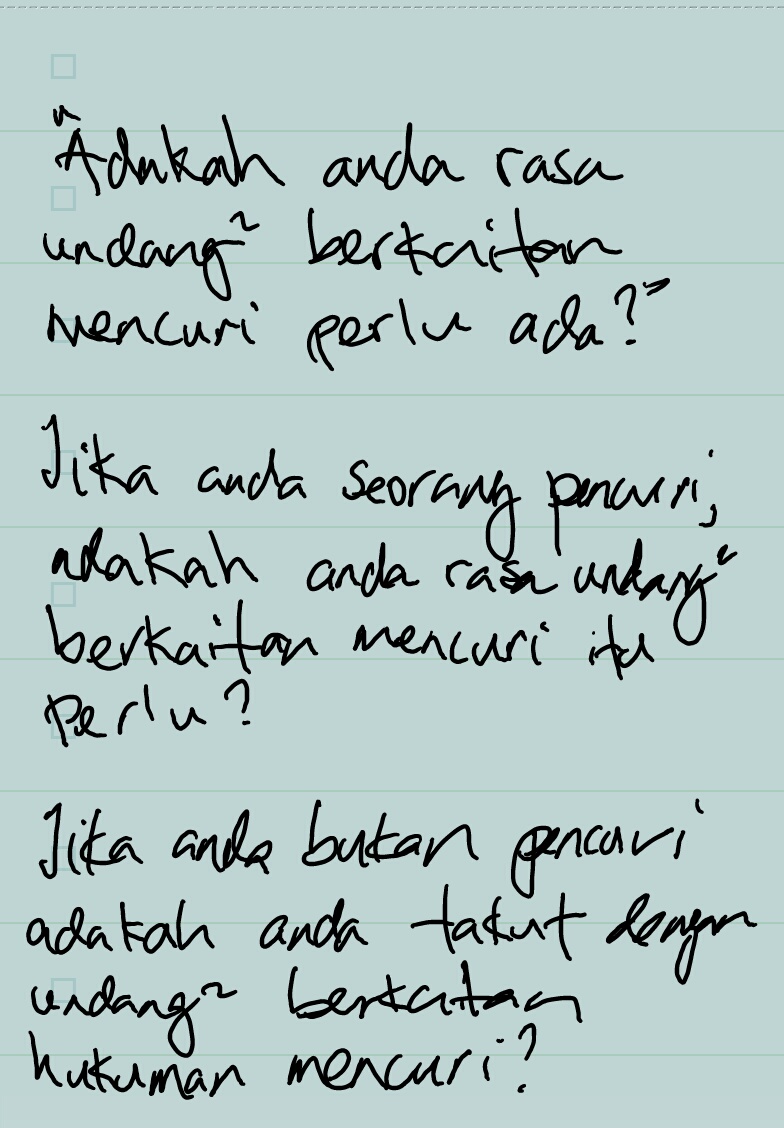 "Adakah anda rasa
undang² berkaitan
mencuri perlu ada?"
Jika anda seorang pencuri,
adakah anda rasa undang²
berkaitan mencuri itu
perlu?
Jika anda bukan pencuri
adakah anda takut dengan
undang² berkaitan
hukuman mencuri?